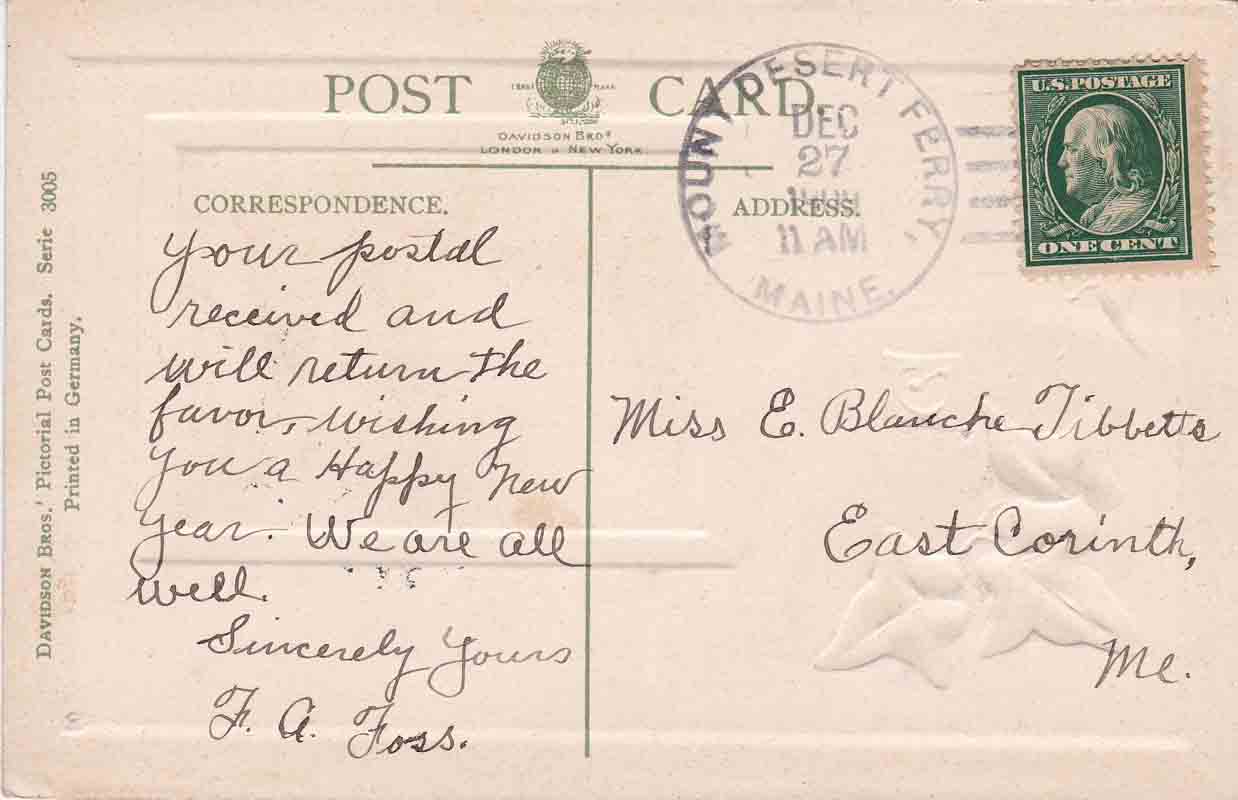 POST CARD.
TRADE MARK
DAVIDSON BROS
LONDON & NEW YORK.
MOUNT DESERT FERRY,
DEC
27
11 AM
MAINE.
U.S. POSTAGE
ONE CENT
DAVIDSON BROS.' Pictorial Post Cards. Serie 3005
Printed in Germany.
CORRESPONDENCE.
Your postal
received and
will return the
favor, wishing
you a Happy New
Year. We are all
well.
Sincerely Yours
F. A. Foss.
ADDRESS.
Miss E. Blanche Tibbetts
East Corinth,
Me.